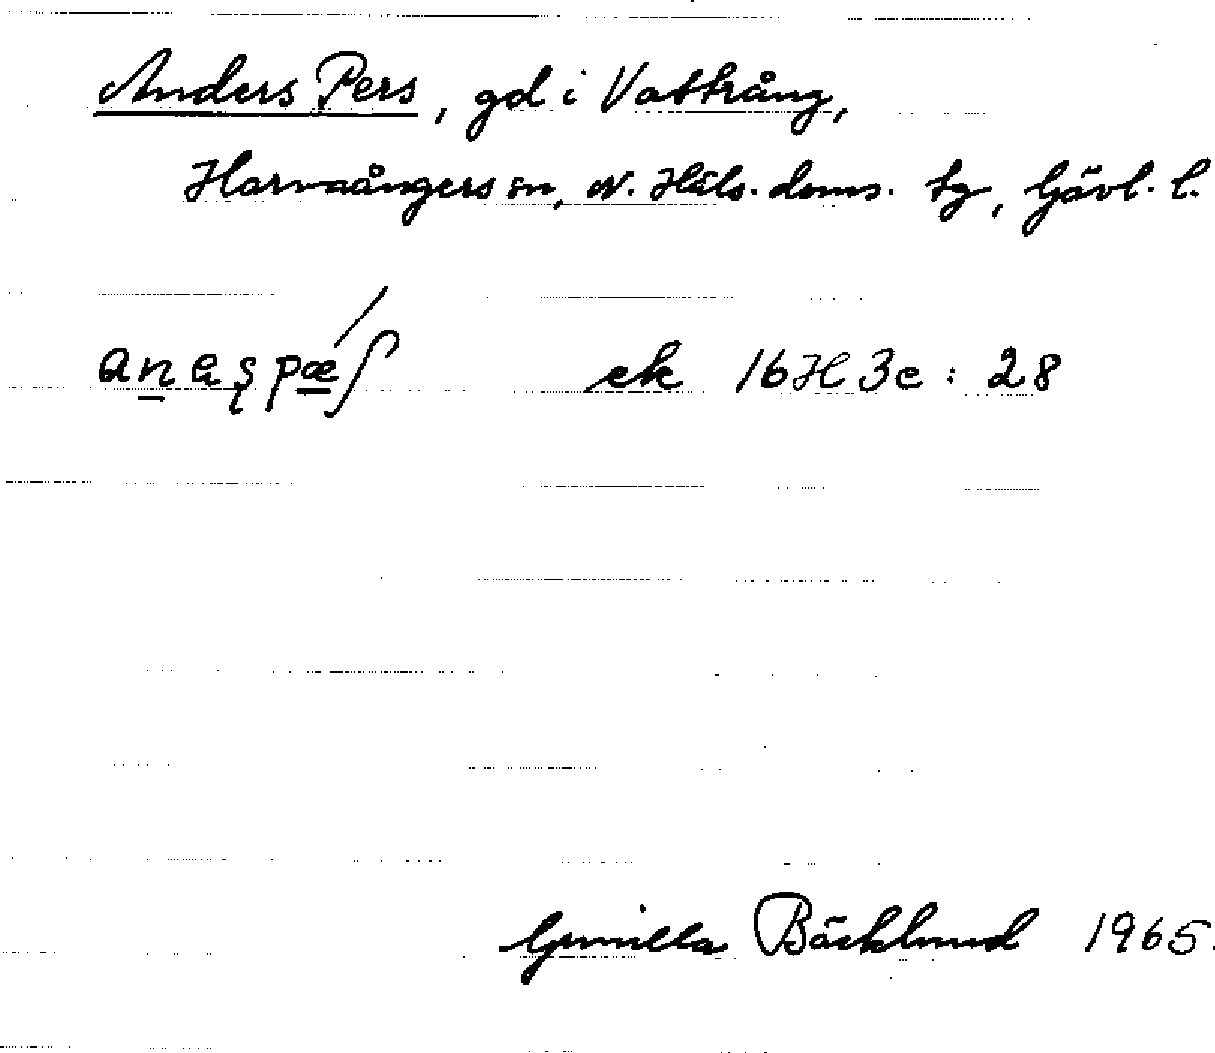 Anders Pers, gd i Vattrång,
Harmånger sn, N. Häls. doms. tg, Gävl. l.
ek 16H3e : 28
Gunilla Bäcklund 1965.